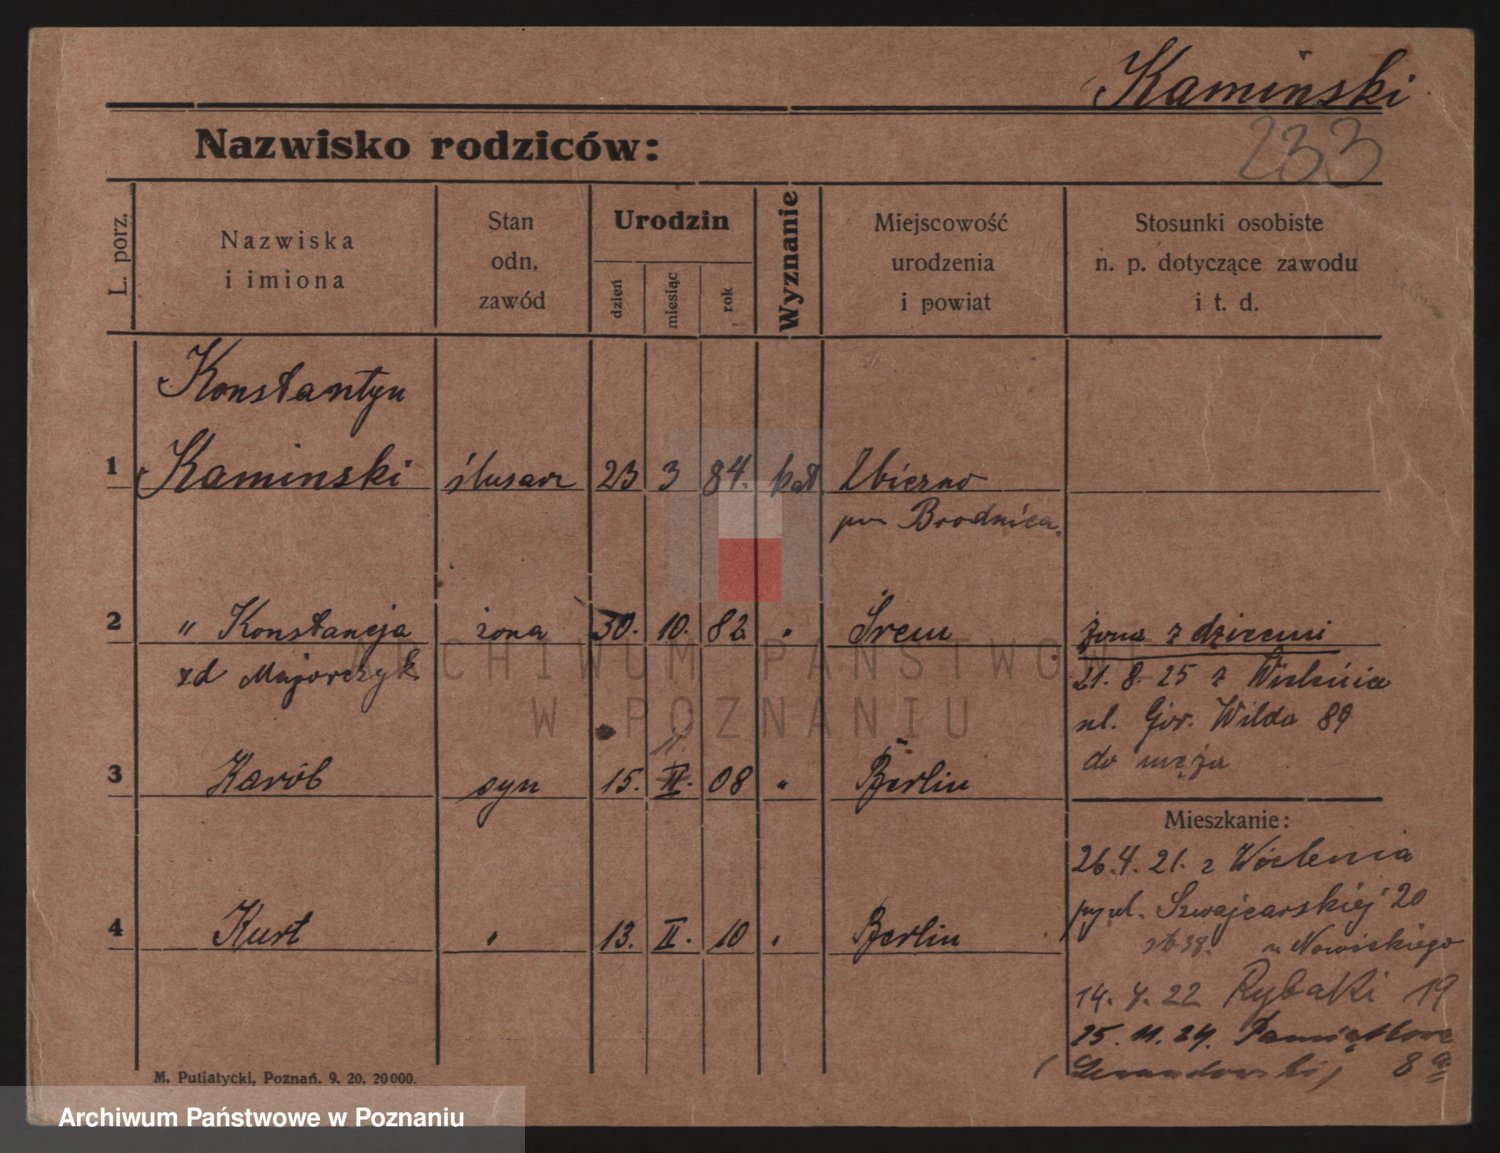 Kamiński
233
Nazwisko rodziców:
L. porz.
Nazwiska
i imiona
Stan
odn.
zawód
Urodzin
dzień
miesiąc
rok
Wyznanie
Miejscowość
urodzenia
i powiat
Stosunki osobiste
n. p. dotyczące zawodu
i t. d.
Konstantyn
1 Kaminski ślusarz 23 3 84. kat Zbiczno
pow Brodnica.
2 " Konstancja żona 30. 10. 82 " Śrem żona z dziećmi
zd Majorczyk 21. 8. 25 z
ul. Gór. Wilda 89
do męża
3 Karól syn 15. II. 08 " Berlin
Mieszkanie:
26. 4. 21. z
przy ul. Szwajcarskiej 20
u Nowickiego
4 Kurt " 13. II. 10 " Berlin
14. 4. 22 Rybaki 19
25. 11. 24. Pamiątkowa
Lewandowski) 8a
M. Putiatycki, Poznań. 9. 20. 20000.
ARCHIWUM PAŃSTWOWE
W POZNANIU
Archiwum Państwowe w Poznaniu